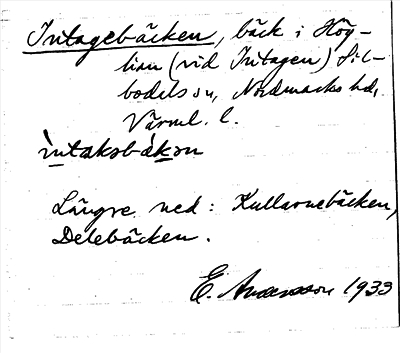 Intagebäcken, bäck i Hög-
lian (vid Intagen) Sil-
bodals sn, Nordmarks hd,
Värml. l.
intaksbäkən
Längre ned: Kullarnebäcken,
Delebäcken.
E. Andersson 1933